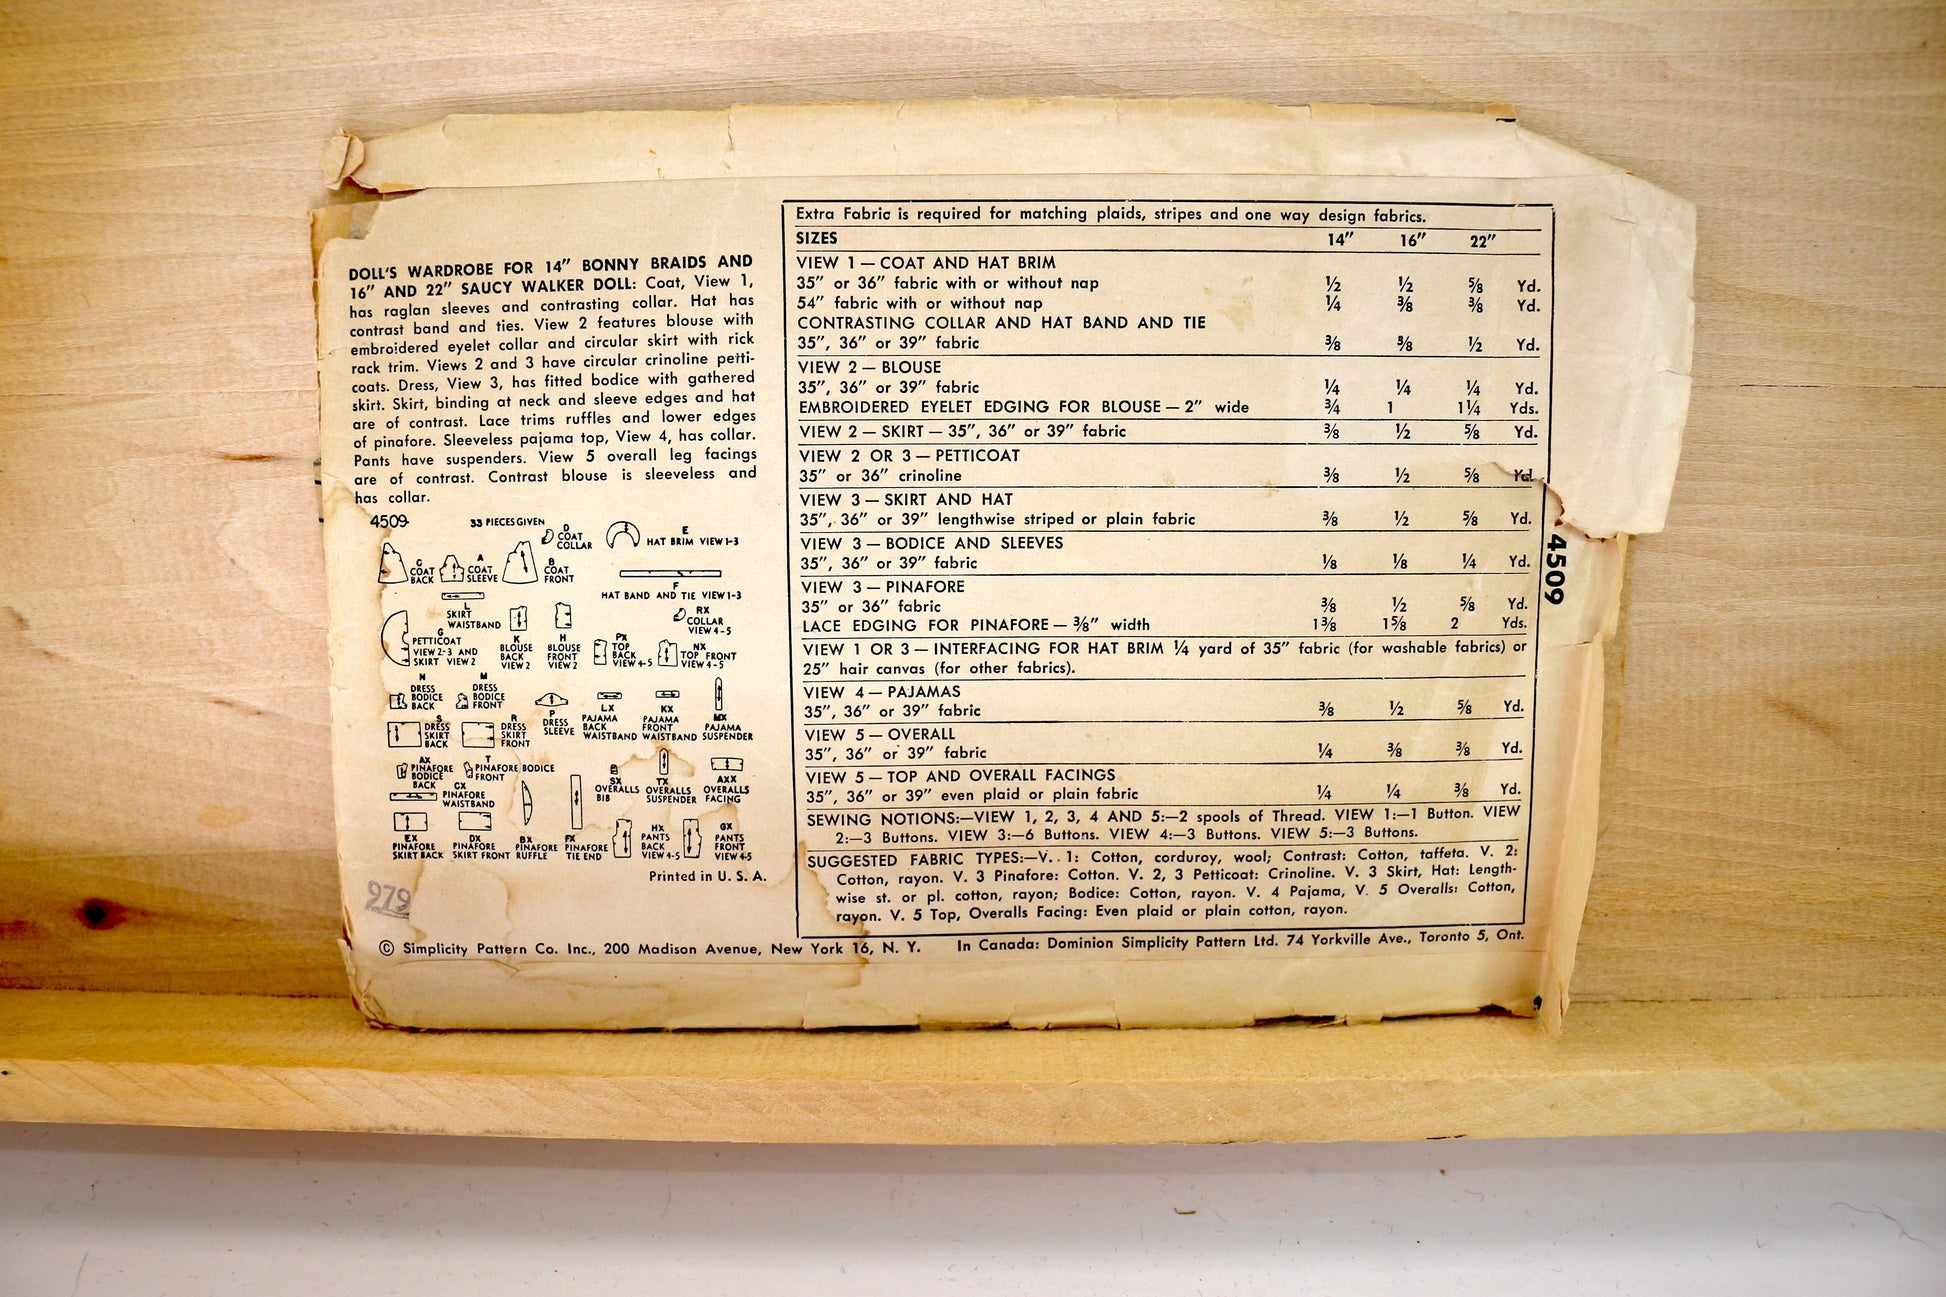 DOLL'S WARDROBE FOR 14" BONNY BRAIDS AND
16" AND 22" SAUCY WALKER DOLL: Coat, View 1,
has raglan sleeves and contrasting collar. Hat has
contrast band and ties. View 2 features blouse with
embroidered eyelet collar and circular skirt with rick
rack trim. Views 2 and 3 have circular crinoline petti-
coats. Dress, View 3, has fitted bodice with gathered
skirt. Skirt, binding at neck and sleeve edges and hat
are of contrast. Lace trims ruffles and lower edges
of pinafore. Sleeveless pajama top, View 4, has collar.
Pants have suspenders. View 5 overall leg facings
are of contrast. Contrast blouse is sleeveless and
has collar.
4509 33 PIECES GIVEN
D
COAT
COLLAR
E
HAT BRIM VIEW 1-3
C
COAT
BACK
A
COAT
SLEEVE
B
COAT
FRONT
F
HAT BAND AND TIE VIEW 1-3
L
SKIRT
WAISTBAND
RX
COLLAR
VIEW 4-5
G
PETTICOAT
VIEW 2-3 AND
SKIRT VIEW 2
K
BLOUSE
BACK
VIEW 2
H
BLOUSE
FRONT
VIEW 2
PX
TOP
BACK
VIEW 4-5
NX
TOP FRONT
VIEW 4-5
N
DRESS
BODICE
BACK
M
DRESS
BODICE
FRONT
P
DRESS
SLEEVE
LX
PAJAMA
BACK
WAISTBAND
KX
PAJAMA
FRONT
WAISTBAND
MX
PAJAMA
SUSPENDER
S
DRESS
SKIRT
BACK
R
DRESS
SKIRT
FRONT
AX
PINAFORE
BODICE
BACK
T
PINAFORE BODICE
FRONT
CX
PINAFORE
WAISTBAND
SX
OVERALLS
BIB
TX
OVERALLS
SUSPENDER
AXX
OVERALLS
FACING
EX
PINAFORE
SKIRT BACK
DX
PINAFORE
SKIRT FRONT
BX
PINAFORE
RUFFLE
FX
PINAFORE
TIE END
HX
PANTS
BACK
VIEW 4-5
GX
PANTS
FRONT
VIEW 4-5
Printed in U. S. A.
979
Extra Fabric is required for matching plaids, stripes and one way design fabrics.
SIZES 14" 16" 22"
VIEW 1 — COAT AND HAT BRIM
35" or 36" fabric with or without nap ½ ½ ⅝ Yd.
54" fabric with or without nap ¼ ⅜ ⅜ Yd.
CONTRASTING COLLAR AND HAT BAND AND TIE
35", 36" or 39" fabric ⅜ ⅜ ½ Yd.
VIEW 2 — BLOUSE
35", 36" or 39" fabric ¼ ¼ ¼ Yd.
EMBROIDERED EYELET EDGING FOR BLOUSE — 2" wide ¾ 1 1¼ Yds.
VIEW 2 — SKIRT — 35", 36" or 39" fabric ⅜ ½ ⅝ Yd.
VIEW 2 OR 3 — PETTICOAT
35" or 36" crinoline ⅜ ½ ⅝ Yd.
VIEW 3 — SKIRT AND HAT
35", 36" or 39" lengthwise striped or plain fabric ⅜ ½ ⅝ Yd.
VIEW 3 — BODICE AND SLEEVES
35", 36" or 39" fabric ⅛ ⅛ ¼ Yd.
VIEW 3 — PINAFORE
35" or 36" fabric ⅜ ½ ⅝ Yd.
LACE EDGING FOR PINAFORE — ⅜" width 1⅜ 1⅝ 2 Yds.
VIEW 1 OR 3 — INTERFACING FOR HAT BRIM ¼ yard of 35" fabric (for washable fabrics) or
25" hair canvas (for other fabrics).
VIEW 4 — PAJAMAS
35", 36" or 39" fabric ⅜ ½ ⅝ Yd.
VIEW 5 — OVERALL
35", 36" or 39" fabric ¼ ⅜ ⅜ Yd.
VIEW 5 — TOP AND OVERALL FACINGS
35", 36" or 39" even plaid or plain fabric ¼ ¼ ⅜ Yd.
SEWING NOTIONS:—VIEW 1, 2, 3, 4 AND 5:—2 spools of Thread. VIEW 1:—1 Button. VIEW
2:—3 Buttons. VIEW 3:—6 Buttons. VIEW 4:—3 Buttons. VIEW 5:—3 Buttons.
SUGGESTED FABRIC TYPES:—V. 1: Cotton, corduroy, wool; Contrast: Cotton, taffeta. V. 2:
Cotton, rayon. V. 3 Pinafore: Cotton. V. 2, 3 Petticoat: Crinoline. V. 3 Skirt, Hat: Length-
wise st. or pl. cotton, rayon; Bodice: Cotton, rayon. V. 4 Pajama, V. 5 Overalls: Cotton,
rayon. V. 5 Top, Overalls Facing: Even plaid or plain cotton, rayon.
4509
© Simplicity Pattern Co. Inc., 200 Madison Avenue, New York 16, N. Y. In Canada: Dominion Simplicity Pattern Ltd. 74 Yorkville Ave., Toronto 5, Ont.